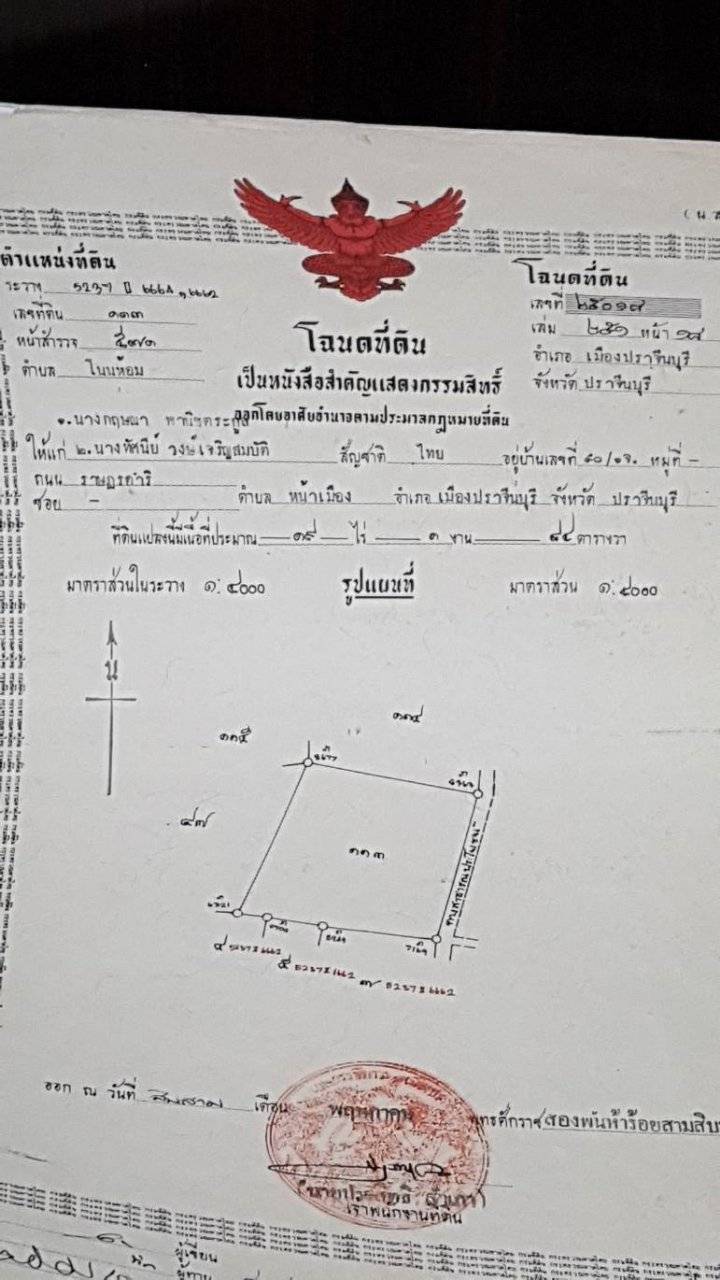 ( น.ส
ตำแหน่งที่ดิน
ระวาง 5237 II ๖๖๖๔,๖๖๖๒
เลขที่ดิน ๑๑๓
หน้าสำรวจ
ตำบล โนนห้อม
โฉนดที่ดิน
เลขที่ ๒๕๐๑๙
เล่ม ๒๕๑ หน้า ๑๙
อำเภอ เมืองปราจีนบุรี
จังหวัด ปราจีนบุรี
โฉนดที่ดิน
เป็นหนังสือสำคัญแสดงกรรมสิทธิ์
ออกโดยอาศัยอำนาจตามประมวลกฎหมายที่ดิน
๑. นางกฤษณา พานิชตระกูล
ให้แก่ ๒. นางทัศนีย์ วงษ์เจริญสมบัติ สัญชาติ ไทย อยู่บ้านเลขที่ หมู่ที่ –
ถนน ราษฎรดำริ
ซอย – ตำบล หน้าเมือง อำเภอ เมืองปราจีนบุรี จังหวัด ปราจีนบุรี
ที่ดินแปลงนี้มีเนื้อที่ประมาณ ๑๙ ไร่ ๑ งาน ๘๔ ตารางวา
มาตราส่วนในระวาง ๑:๔๐๐๐ รูปแผนที่ มาตราส่วน ๑:๔๐๐๐
น
๑๑๔
๑๑๕
๔๗
๑๑๓
ทางสาธารณประโยชน์
ออก ณ วันที่ สิบสาม เดือน พฤษภาคม พุทธศักราช สองพันห้าร้อยสามสิบ
เจ้าพนักงานที่ดิน
ผู้เขียน
ผู้ทาน